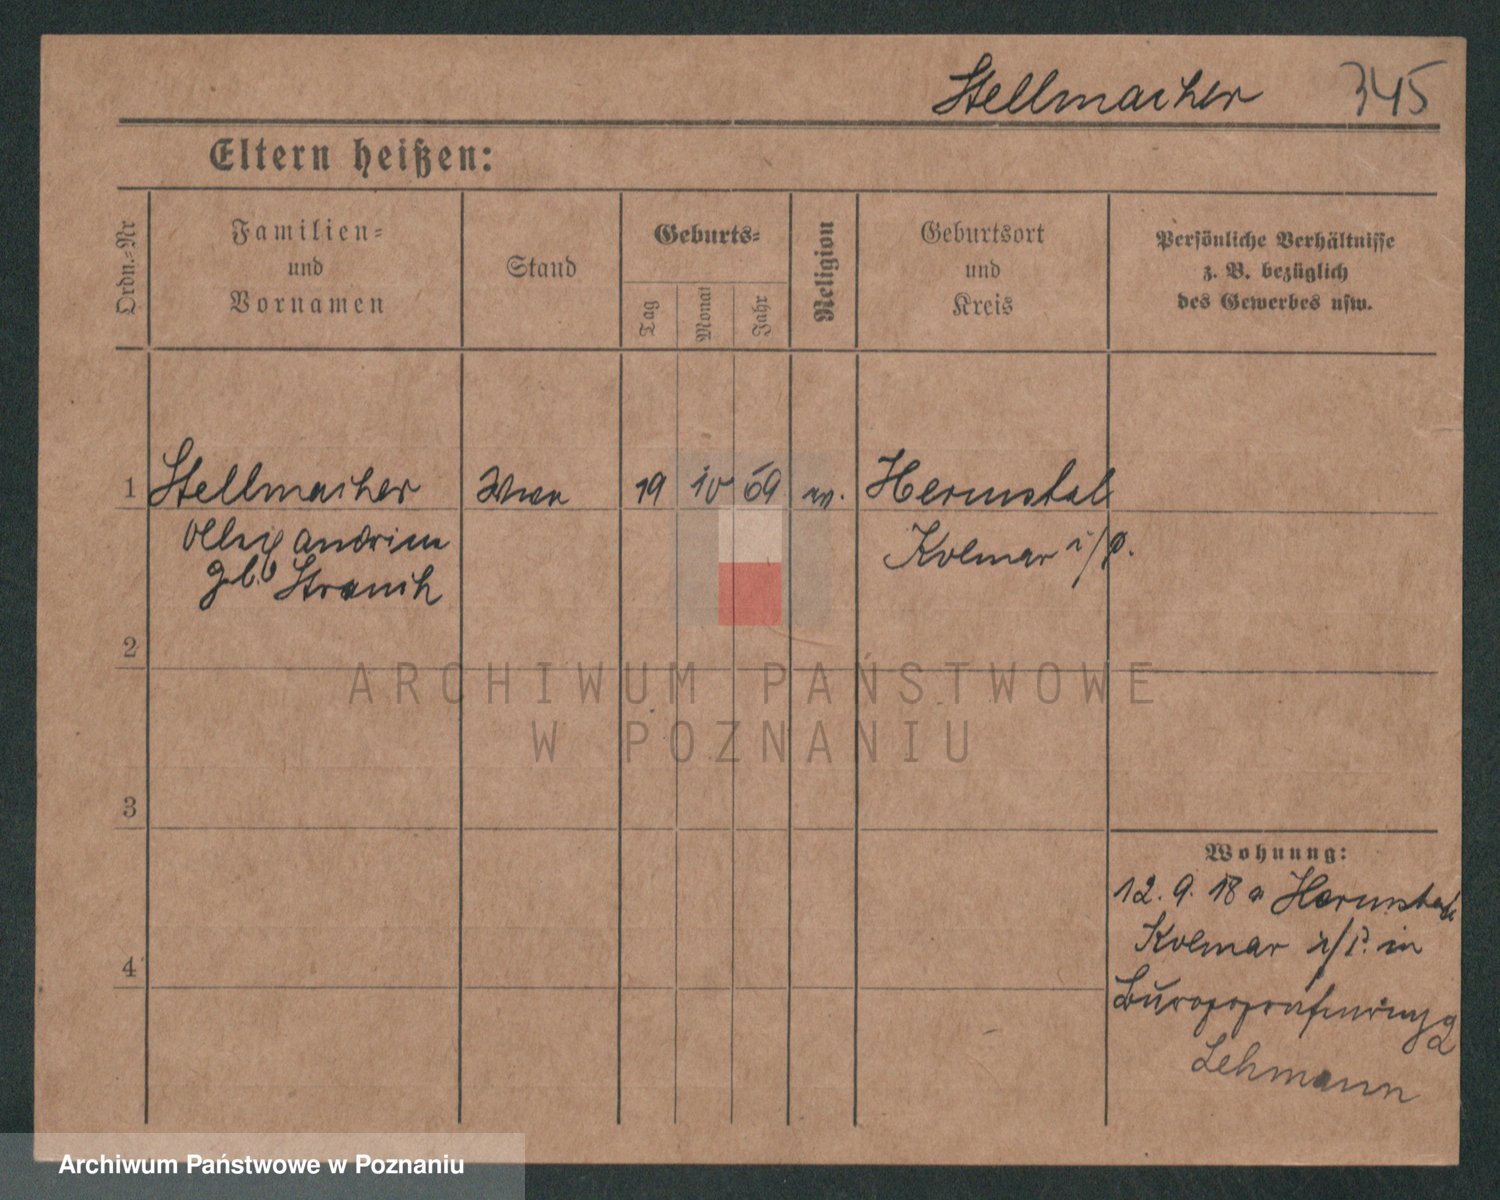 Stellmacher 345
Eltern heißen:
Ordn.-Nr
Familien-
und
Vornamen
Stand
Geburts-
Tag
Monat
Jahr
Religion
Geburtsort
und
Kreis
Persönliche Verhältnisse
z. B. bezüglich
des Gewerbes usw.
1 Stellmacher 19 10 69 ev. Hermstal
Kolmar i/P.
geb.
2
ARCHIWUM PAŃSTWOWE
W POZNANIU
3
Wohnung:
12. 9. 18 Hermstal
4 Kolmar i/P. in
2
Lehmann
Archiwum Państwowe w Poznaniu